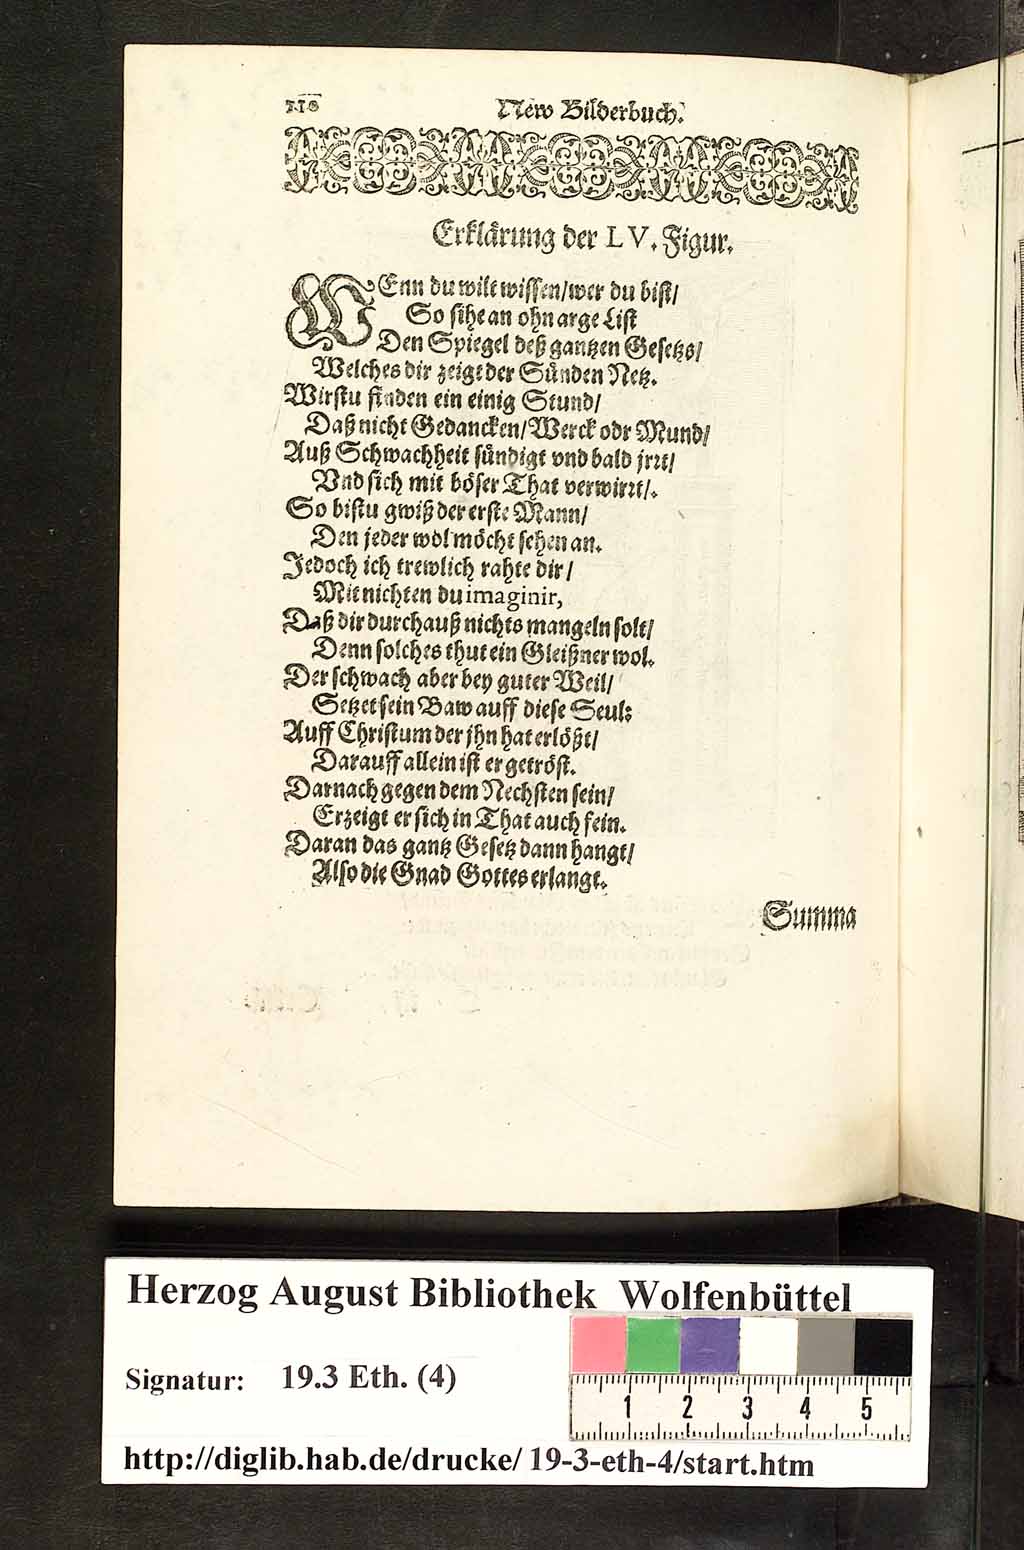 118
New Bilderbuch.
Erklärung der LV. Figur.
WEnn du wilt wissen/wer du bist/
So sihe an ohn arge List
Den Spiegel deß gantzen Gesetzs/
Welches dir zeigt der Sünden Netz.
Wirstu finden ein einig Stund/
Daß nicht Gedancken/Werck odr Mund/
Auß Schwachheit sündigt vnd bald jrrt/
Vnd sich mit böser That verwirrt/.
So bistu gwiß der erste Mann/
Den jeder wol möcht sehen an.
Jedoch ich trewlich rahte dir/
Mit nichten du imaginir,
Daß dir durchauß nichts mangeln solt/
Denn solches thut ein Gleißner wol.
Der schwach aber bey guter Weil/
Setzet sein Baw auff diese Seul:
Auff Christum der jhn hat erlößt/
Darauff allein ist er getröst.
Darnach gegen dem Nechsten sein/
Erzeigt er sich in That auch fein.
Daran das gantz Gesetz dann hangt/
Also die Gnad Gottes erlangt.
Summa
Herzog August Bibliothek Wolfenbüttel
Signatur: 19.3 Eth. (4)
1 2 3 4 5
http://diglib.hab.de/drucke/ 19-3-eth-4/start.htm